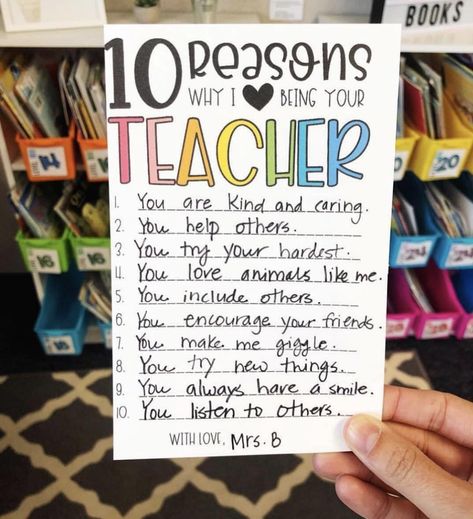 BOOKS
10 Reasons
WHY I ♥ BEING YOUR
TEACHER
1. You are kind and caring.
2. You help others.
3. You try your hardest.
4. You love animals like me.
5. You include others.
6. You encourage your friends.
7. You make me giggle.
8. You try new things.
9. You always have a smile.
10. You listen to others.
WITH LOVE, Mrs. B
14
20
16